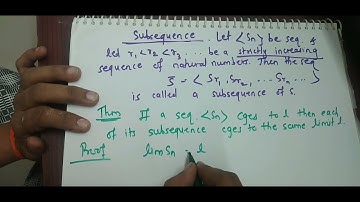 Subsequence . Let <Sn> be seq. &
let r₁ < r₂ < r₃ .... be a strictly increasing
sequence of natural numbers. Then the seq
ξ = < Sr₁, Sr₂, ... Srₙ ... >
is called a subsequence of S.
Thm If a seq. <Sn> cges to l then each
of its subsequence cges to the same limit l.
Proof lim Sn = l